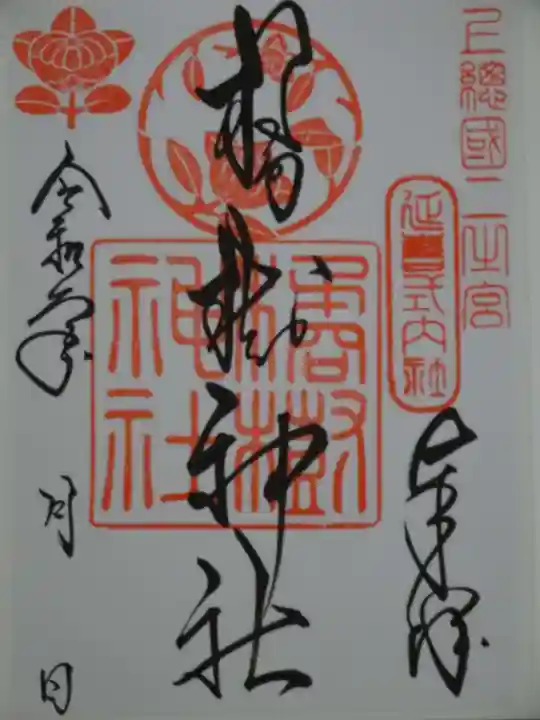 上總國二之宮
延喜式内社
奉拝
橘樹神社
橘樹神社
令和元年
月
日